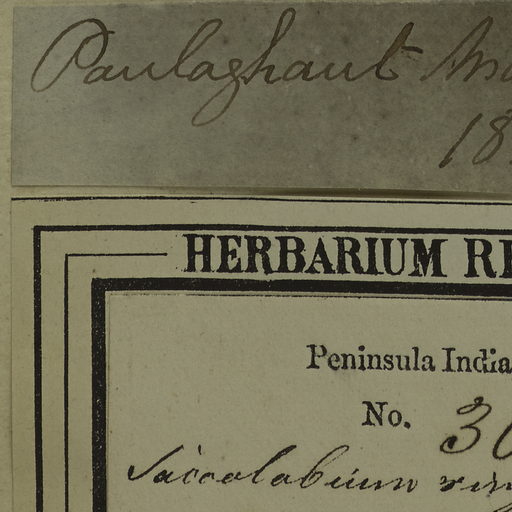 Paulaghaut
18
HERBARIUM RE
Peninsula India
No. 30
Saccolabium